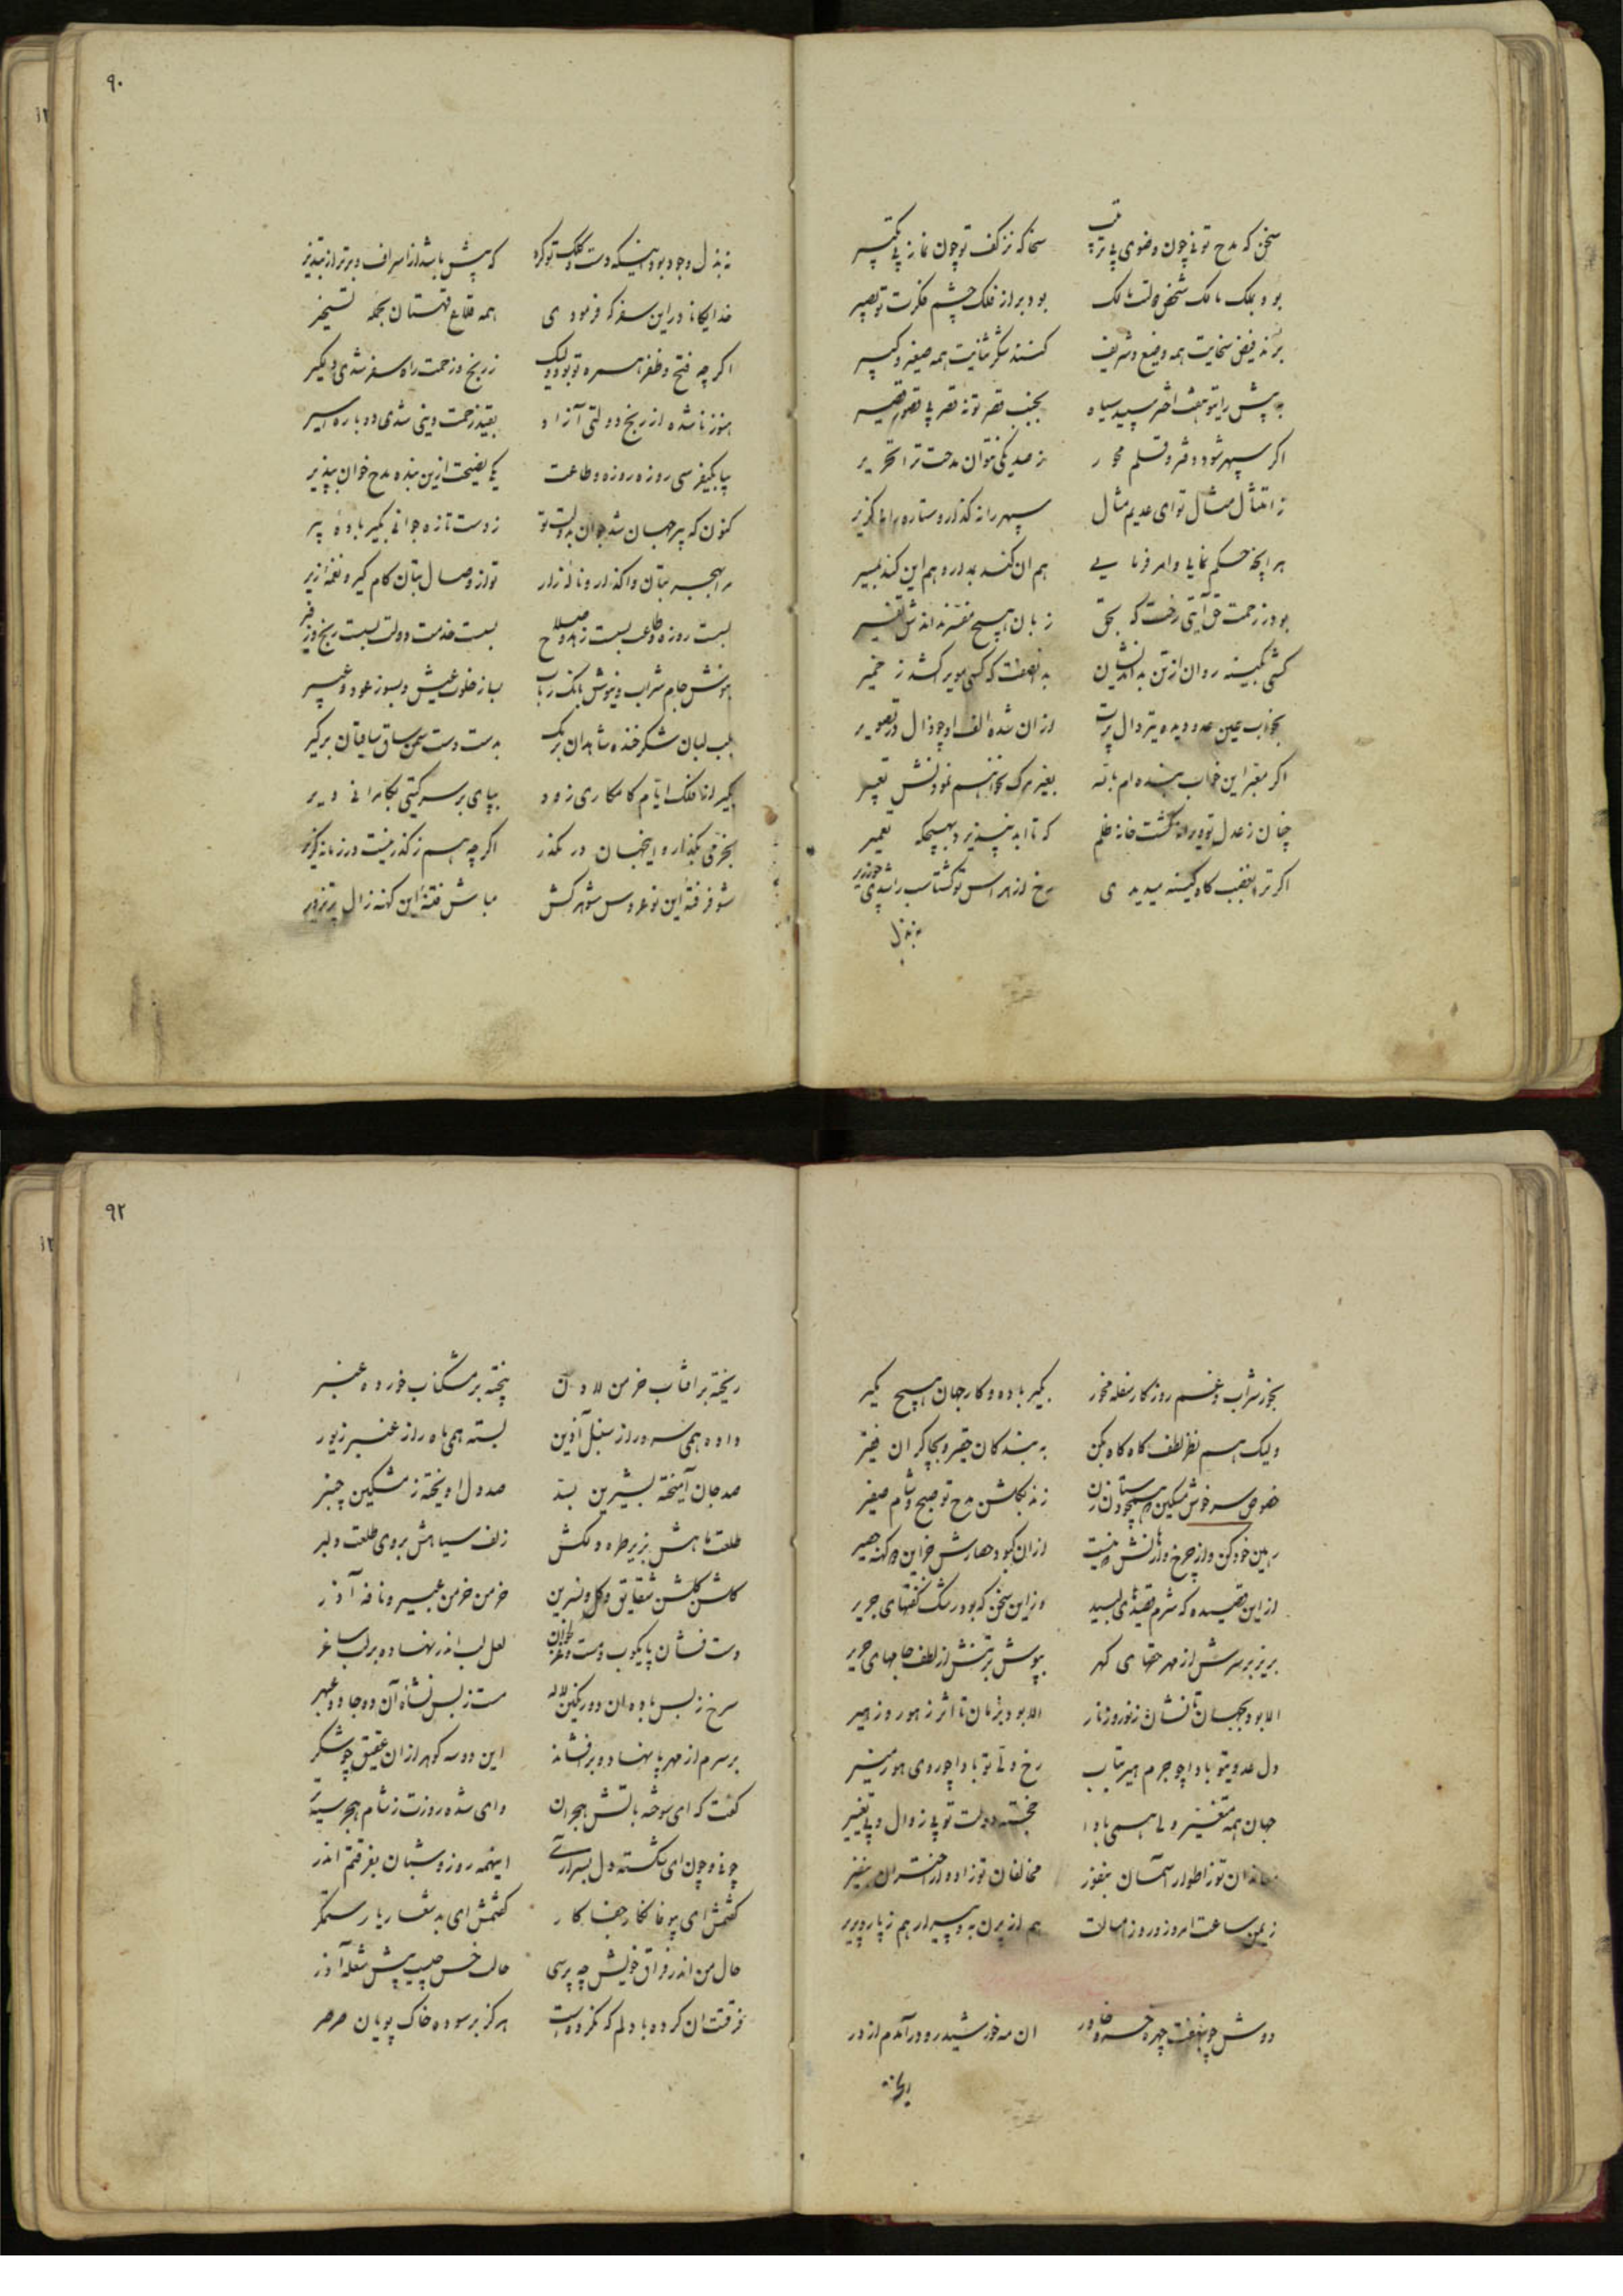 سخن که مدح تو نی چون وضوی بی ترتیب سخا که نز کف تو چون نماز بی تکبیر
بود بملک مالک
بود براز فلک چشم فکرت تو بصیر
برند فیض سخایت همه وضیع و شریف کنند شکر ثنایت همه صغیر و کبیر
به پیش رایتو هفت اختر سپید سیاه بجنب قصر تو نه قصر بی قصور قصیر
اگر سپهر شود دفتر و قلم محور ز صد یکی نتوان مدحت ترا تحریر
ز امتثال مثال تو ای عدیم مثال سپهر را نه گذار و ستاره را نه گزیر
هر انچه حکم نمایی و امر فرمایی هم ان کند بدار و هم این کند
بود ز رحمت حق آیتی رخت که بحق زبان هیچ مفسر نداندش تفسیر
کشی بکینه روان از تن بداندیشان بدانصفت که کسی مو برکشد ز خمیر
بخواب عین عدو دیده تیر دال پرت ازان شده الف او چو ذال در تصویر
اگر معبر این خواب بنده ام بالله بغیر مرگ نخواهم نمودنش تعبیر
چنان ز عدل تو ویرانه گشت خانه ظلم که تا ابد نپذیرد بهیچگه تعمیر
اگر ترا بغضب گاه کینه میدیدی رخ از هراس تو گشتاسب را شدی چو زریر
نه بذل
۹۰
نه بذل وجود بود اینکه دست و کلک تو کرد که پیش باشد از اسراف و برتر از تبذیر
خدایگانا در این سفر که فرمودی همه قلاع قهستان بجمله تسخیر
اگر چه فتح و ظفر همره تو بود ولیک ز رنج و زحمت راه سفر شدی دلگیر
هنوز نا شده از رنج دولتی آزاد بقید زحمت دینی شدی دوباره اسیر
بپا بکیفر سی روزه روزه و طاعت یکی نصیحت ازین بنده مدح خوان بپذیر
کنون که پیر جهان شد جوان بدولت تو ز دست تازه جوانی بگیر باده پیر
مر هجر بتان واگذار و ناله زار تو از وصال بتان کام گیر و نغمه زیر
بست روزه و طاعت بست زهد و صلاح بست خدمت دولت بست رنج وزیر
بنوش جام شراب و نیوش بانگ رباب بساز خلوت عیش و بسوز عود و عبیر
بلب لبان شکر خنده شاهدان برمک بدست دست سمن ساق ساقیان برگیر
بگیر از فلک ایام کامکاری زود بپای بر سر گیتی بکامرانی دیر
بخرمی بگذار و اینجهان در مگذر اگر چه هم ز گذر نیست در زمانه گزیر
مشو فرفته این نوعروس شوهر کش مباش فتنه این کهنه زال پر تزویر
بخور شراب و غم روزگار سفله مخور بگیر باده و کار جهان بهیچ مگیر
ولیک هم نظر لطف گاه گاه بکن به بندگان حقیر و بچاکران فقیر
خصوص سرخوش مسکین که همچو دستان زن زند بگلشن مدح تو صبح و شام صفیر
رهین خود کن و از چرخ وارهانش
ازان کبود حصارش خر این کهنه حصیر
از این قصیده که شرم قصیدهای لبید وز این سخن که بود رشک گفتهای جریر
بریز بر سرش از مهر حقهای گهر بپوش بر تنش از لطف جامهای حریر
الا بود بجهان تا نشان ز نور و ز نار الا بود بزمان تا اثر ز هور و ز هیر
دل عدوی تو بادا چو جرم هیر بتاب رخ ولی تو بادا چو روی هور منیر
جهان همه متغیر ولی همی بادا خجسته دولت تو بی زوال و بی تغییر
تو ز اطوار آسمان بنفور مخالفان تو زادوار اختران بنفیر
ز یمن ساعت امروز و روز امسالت هم از پرن به و پیرار هم ز پار و پریر
دوش چو بنهفت چهره خسرو خاور ان مه خورشید رو در آمدم از در
ریخته
۹۲
ریخته بر افتاب خرمن لادن پخته بر مشکناب خورده عنبر
داده همی سرو را ز سنبل آذین بسته همی ماه را ز عنبر زیور
صد جان آمیخته بشیرین بسد صد دل اویخته ز مشکین چنبر
طلعت ماهش بزیر طره دلکش زلف سیاهش بروی طلعت دلبر
گلشن گلشن شقایق و گل و نسرین خرمن خرمن عبیر و نافه آذر
دست فشان پایکوب و مست و غزلخوان لعل لب اندر نهاده بر لب ساغر
سرخ ز بس باده ان دو رنگین لاله مست ز بس نشاه آن دو جادو عبهر
بر سرم از مهر پا نهاد و بر افشاند این دو سه گوهر ازان عقیق چو شکر
گفت که ای سوخته باتش هجران وای شده روزت ز شام هجر سیه تر
چونی و چون ای شکسته دل
اینهمه روز و شبان بفرقتم اندر
گفتمش ای بیوفا نگار جفاکار گفتمش ای بد شعار یار ستمگر
حال من اندر فراق خویش چه پرسی حالت خس چیست پیش شعله آذر
فرقتت ان کرده با دلم که نکرده است هرگز بر سوده خاک پویان صرصر